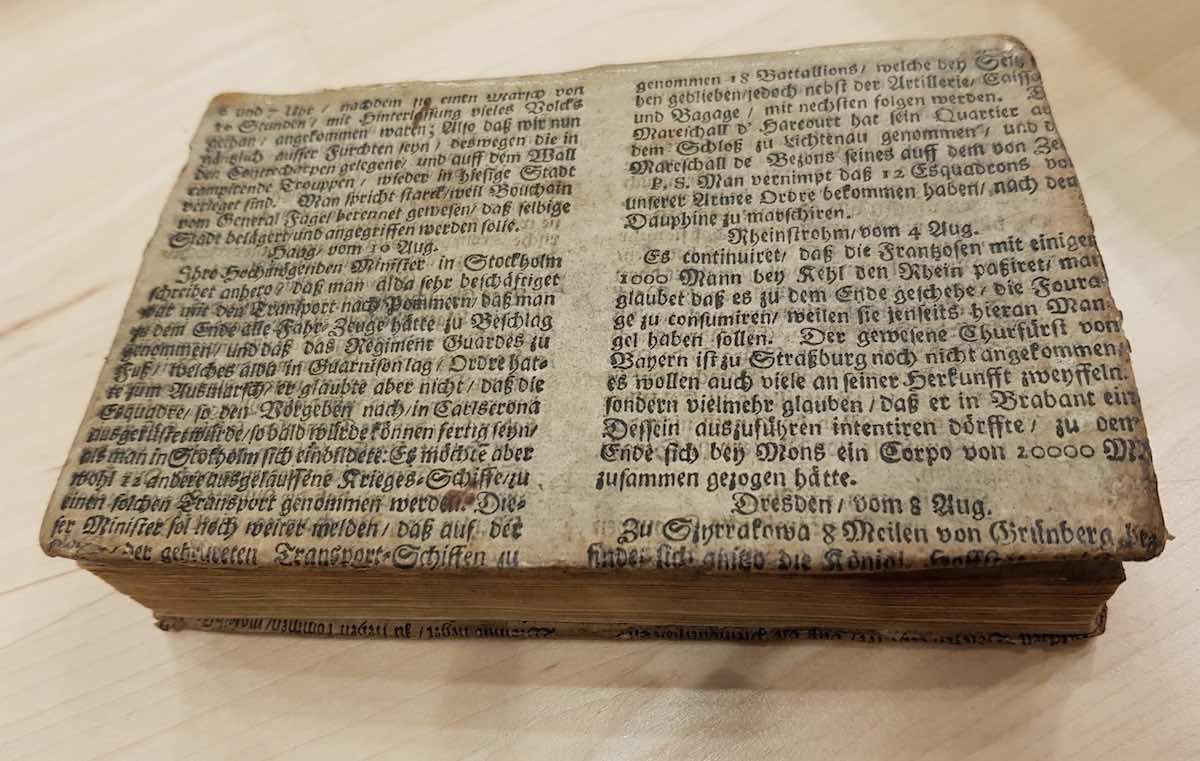 6 und 7 Uhr / nachdem sie einen Marsch von
16 Stunden / mit Hinterlassung vieles Volcks
gethan / angekommen waren; Also daß wir nun
gäntzlich ausser Furchten seyn / deswegen die in
den Contrecharpen gelegene / und auff dem Wall
campirende Trouppen / wieder in hiesige Stadt
verleget sind. Man spricht starck / weil Bouchain
vom General Fagel berennet gewesen / daß selbige
Stadt belägert und angegriffen werden solle.
Haag / vom 10 Aug.
Ihro Hochmögenden Minister in Stockholm
schreibet anhero / daß man alda sehr beschäftiget
war mit den Transport nach Pommern / daß man
zu dem Ende alle Fahr-Zeuge hätte zu Beschlag
genommen / und daß das Regiment Guardes zu
Fuß / welches alda in Guarnison lag / Ordre hat-
te zum Außmarsch / er glaubte aber nicht / daß die
Esquadre / so den Vorgeben nach / in Carlscrona
ausgerüstet würde / so bald würde können fertig seyn /
als man in Stokholm sich einbildete: Es möchte aber
wohl 12 andere ausgelauffene Krieges-Schiffe / zu
einen solchen Transport genommen werden. Die-
ser Minister sol noch weiter melden / daß auf der
Transport-Schiffen zu
genommen 18 Battallions / welche bey Seltz
ben geblieben / jedoch nebst der Artillerie / Caisso
und Bagage / mit nechsten folgen werden.
Mareschall d' Harcourt hat sein Quartier au
dem Schloß zu Lichtenau genommen / und d
Mareschall de Bezons seines auff dem von Zel
P. S. Man vernimpt daß 12 Esquadrons vo
unserer Armee Ordre bekommen haben / nach den
Dauphine zu marschiren.
Rheinstrohm / vom 4 Aug.
Es continuiret / daß die Frantzosen mit einigen
1000 Mann bey Kehl den Rhein paßiret / man
glaubet daß es zu dem Ende geschehe / die Foura-
ge zu consumiren / weilen sie jenseits hieran Man-
gel haben sollen. Der gewesene Churfürst von
Bayern ist zu Straßburg noch nicht angekommen /
es wollen auch viele an seiner Herkunfft zweyffeln /
sondern vielmehr glauben / daß er in Brabant ein
Dessein auszuführen intentiren dörffte / zu dem
Ende sich bey Mons ein Corpo von 20000 M
zusammen gezogen hätte.
Dresden / vom 8 Aug.
Zu Styrrakowa 8 Meilen von Grünberg be
findet sich anitzo die Königl.